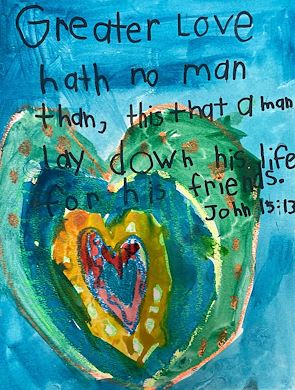 Greater Love
hath no man
than, this that a man
lay down his life
for his friends.
John 15:13